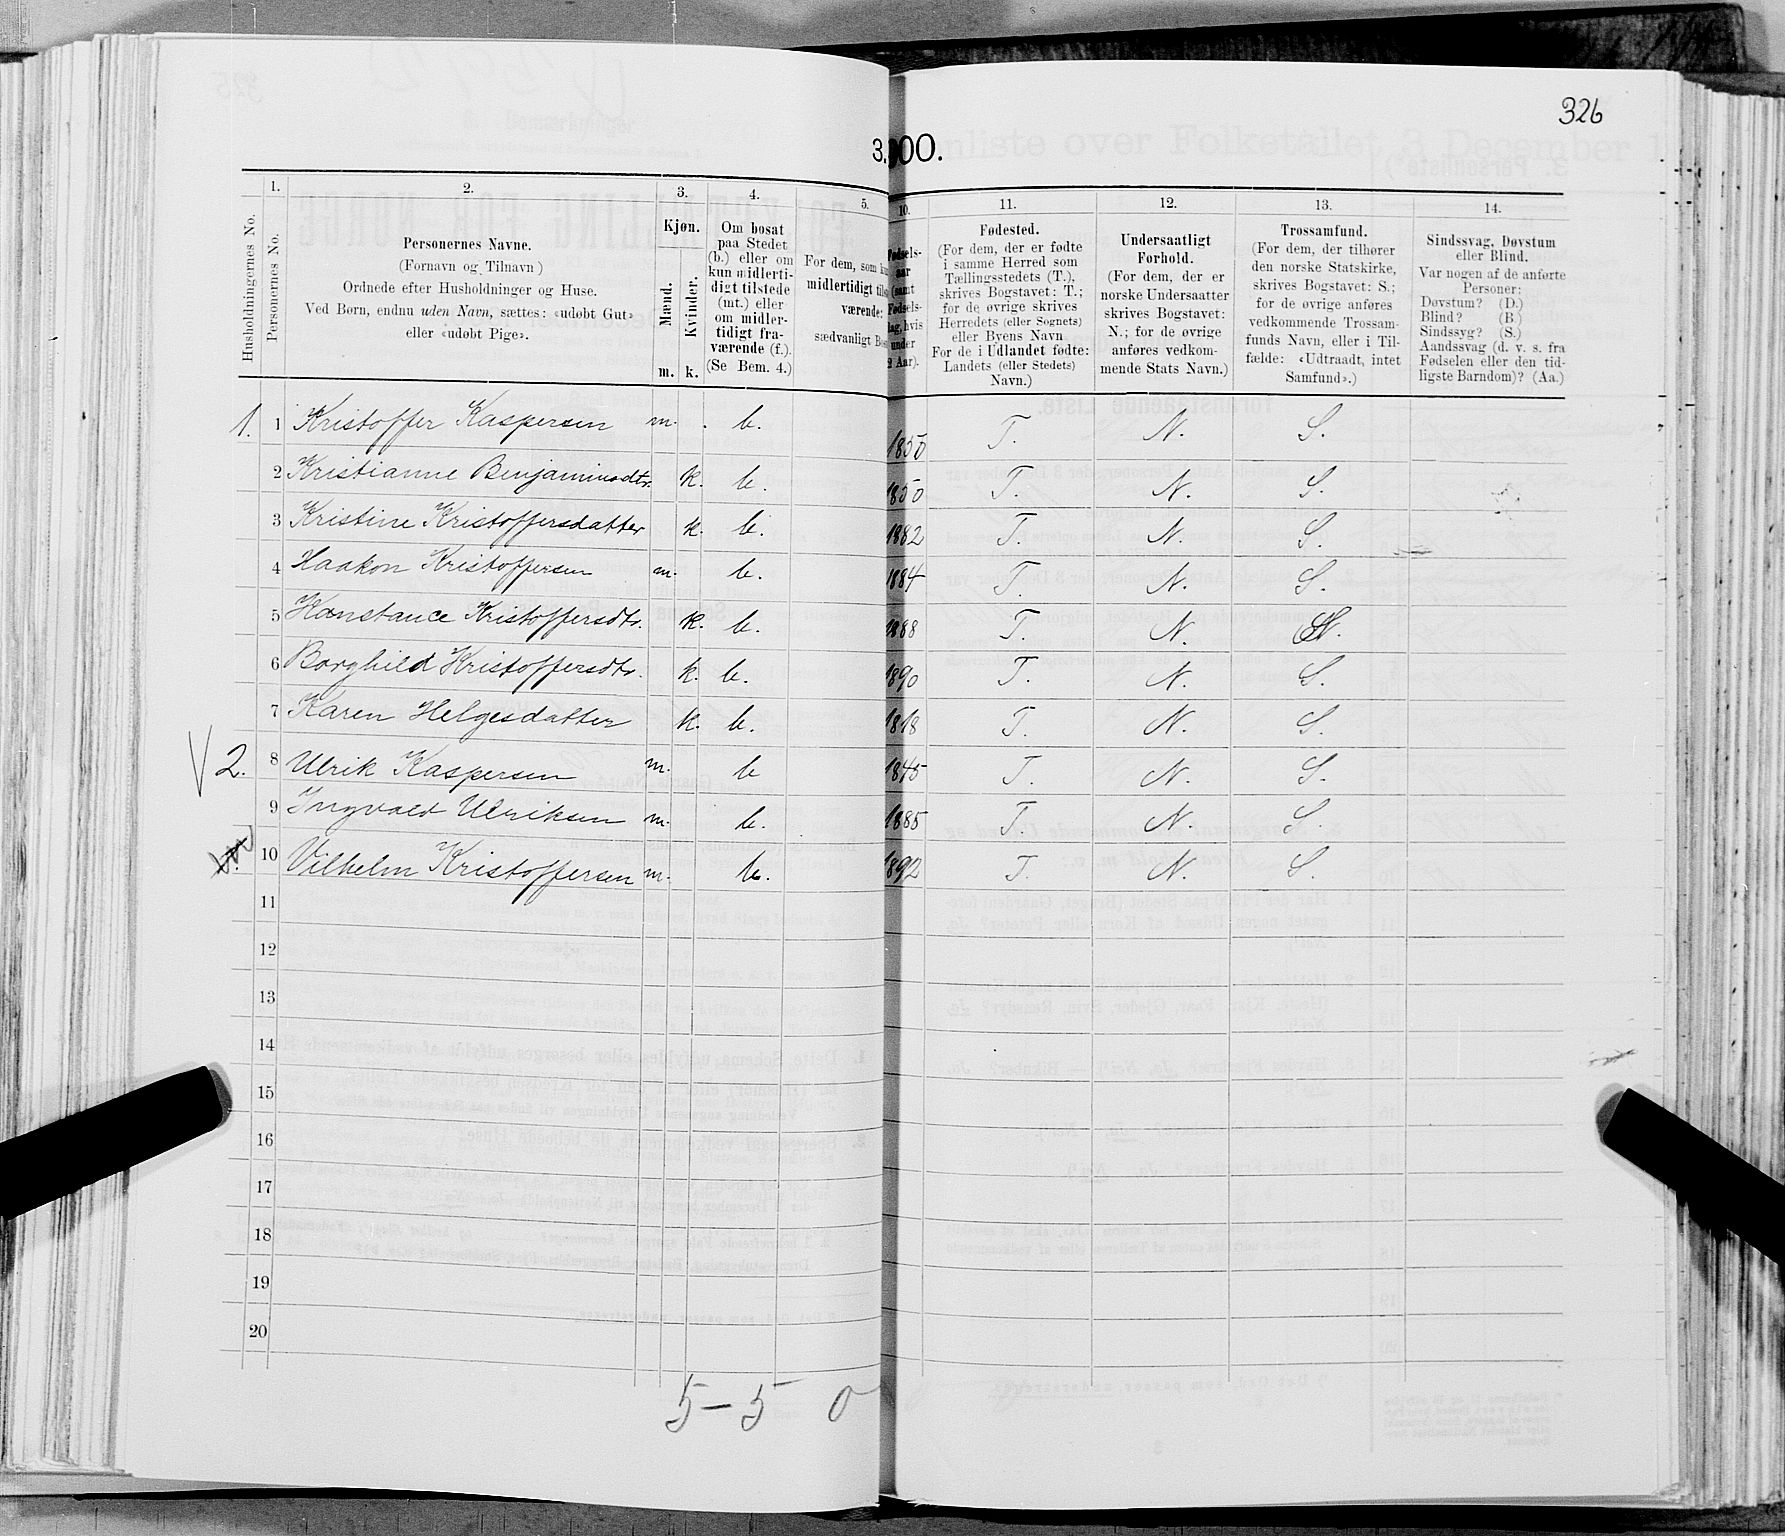 326
3.
00.
1.
2.
3.
4.
5.
10.
11.
12.
13.
14.
Husholdningernes No.
Personernes No.
Personernes Navne.
(Fornavn og Tilnavn)
Ordnede efter Husholdninger og Huse.
Ved Børn, endnu uden Navn, sættes: «udøbt Gut»
eller «udøbt Pige».
Kjøn.
Mænd.
Kvinder.
m.
k.
Om bosat
paa Stedet
(b.) eller om
kun midlerti-
digt tilstede
(mt.) eller
om midler-
tidigt fra-
værende (f.).
(Se Bem. 4.)
For dem, som
midlertidigt
værende:
sædvanligt
Fødsels-
aar
(samt
Fødsels-
dag, hvis
under
2 Aar).
Fødested.
(For dem, der er fødte
i samme Herred som
Tællingsstedets (T.),
skrives Bogstavet: T.;
for de øvrige skrives
Herredets (eller Sognets)
eller Byens Navn
For de i Udlandet fødte:
Landets (eller Stedets)
Navn.)
Undersaatligt
Forhold.
(For dem, der er
norske Undersaatter
skrives Bogstavet:
N.; for de øvrige
anføres vedkom-
mende Stats Navn.)
Trossamfund.
(For dem, der tilhører
den norske Statskirke,
skrives Bogstavet: S.;
for de øvrige anføres
vedkommende Trossam-
funds Navn, eller i Til-
fælde: «Udtraadt, intet
Samfund».)
Sindssvag, Døvstum
eller Blind.
Var nogen af de anførte
Personer:
Døvstum? (D.)
Blind? (B.)
Sindssyg? (S.)
Aandssvag (d. v. s. fra
Fødselen eller den tid-
ligste Barndom)? (Aa.)
1. 1 Kristoffer Kaspersen m. b. 1850 T. N. S.
2 Kristianne Benjaminsdtr. k. b. 1850 T. N. S.
3 Kristine Kristoffersdatter k. b. 1882 T. N. S.
4 Haakon Kristoffersen m. b. 1884 T. N. S.
5 Konstance Kristoffersdtr. k. b. 1888 T. N. S.
6 Borghild Kristoffersdtr. k. b. 1890 T. N. S.
7 Karen Helgesdatter k. b. 1818 T. N. S.
2. 8 Ulrik Kaspersen m. b 1845 T. N. S.
9 Ingvald Ulriksen m. b. 1885 T. N. S.
10 Vilhelm Kristoffersen m. b. 1892 T. N. S.
11
12
13
14
15
16
17
18
19
20
5 – 5 0